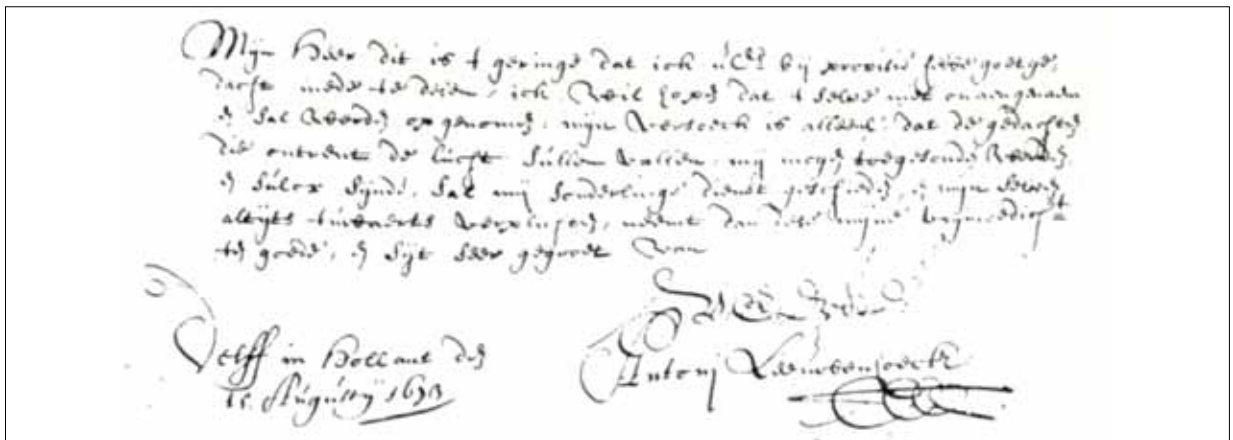 Mijn Heer dit is t geringe dat ick UEd bij provisie hebbe goetge,
dacht mede te deelen, ick wil hopen dat t selve niet onaengenaem
en sal werden opgenomen, mijn versoeck is alleen dat de gedachten
die ontrent de lucht sullen vallen, mij mogen toegesonden werden,
en sulcx sijnde, sal mij sonderlinge dienst geschieden, en mijn selven
altijts tuwaerts verplichten, neemt dan dese mijne vrijmoedicheijt
ten goede, en sijt seer gegroet van
UEd
Delff in Hollant den
Augustij 1673
Antonj Leeuwenhoeck